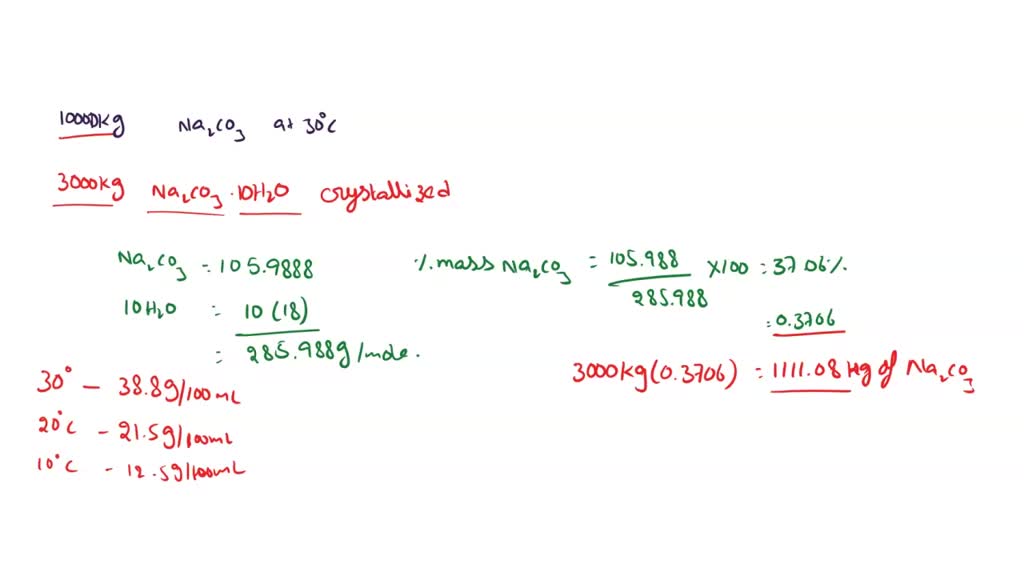 10000kg Na₂CO₃ at 30°C
3000kg Na₂CO₃·10H₂O crystallized
Na₂CO₃ = 105.9888
10H₂O = 10(18)
= 285.988g/mole.
% mass Na₂CO₃ = 105.988/285.988 ×100 = 37.06%
= 0.3706
3000kg(0.3706) = 1111.08 Kg of Na₂CO₃
30° – 38.8g/100mL
20°C – 21.5g/100mL
10°C – 12.5g/100mL